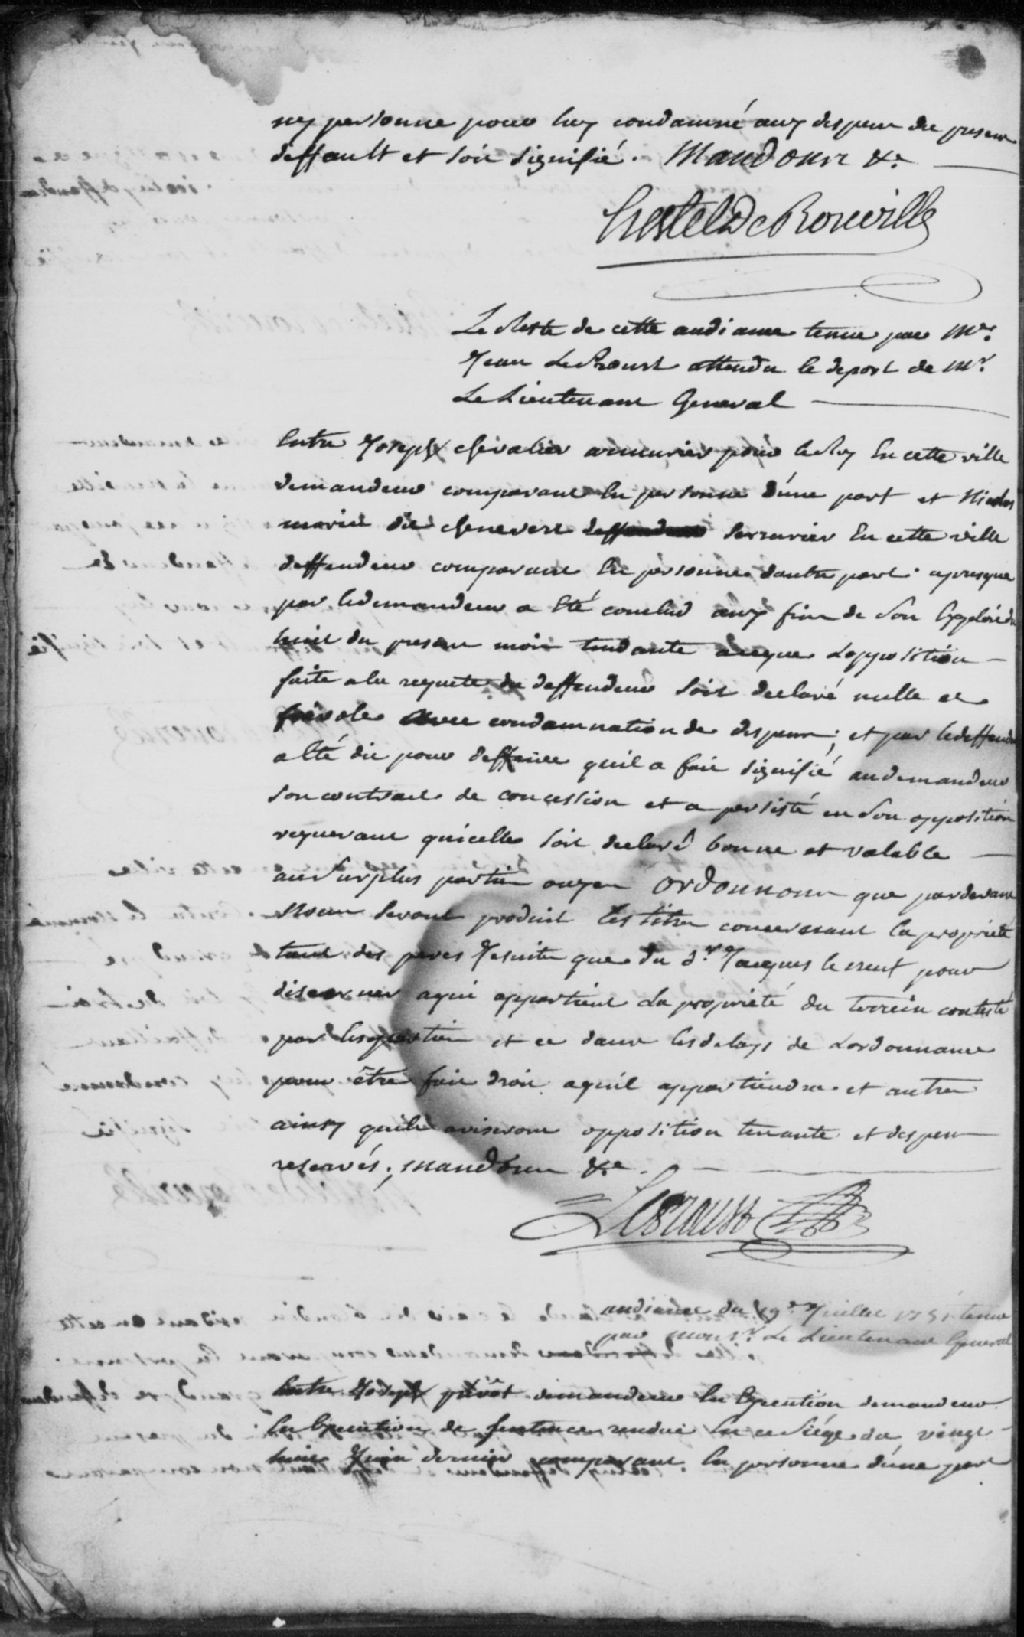 ny personne pour luy condamné aux depens du present
deffault et soit signifié. Mandons &c
Hertel De Rouville
Le Reste de cette audiance tenue par Me.
Jean LeProust attendu le deport de Mr.
Le Lieutenant General
Entre Joseph chevalier armurier pour le Roy En cette ville
demandeur comparant En personne d'une part et Nicolas
morin dit chenevert serrurier En cette ville
deffendeur comparant En personne dautre part. apresque
par ledemandeur a Eté conclud aux fins de son Exploit du
huit du present mois tendante aceque Lopposition
faite a la requete du deffendeur soit declaré nulle et
frivole avec condamnation de depens; et par ledeffendeur
a Eté dit pour deffense quil a fait signifié audemandeur
son contract de concession et a persisté en son opposition
requerant quicelle soit declaré bonne et valable
ausurplus parties ouyes ordonnons que pardevant
Nous seront produit les titres concernant la propriété
tant des peres Jesuites que du Sr. Jacques pour
discerner aqui appartient La propriété du terrein contesté
par lesparties et ce dans lesdelays de Lordonnance
pour être fait droit aquil appartiendra et autre
ainsy quils aviseront opposition tenante et depens
reservés; mandons &c.
LeProust
audiance du 19e. Juillet 1751. tenue
par monsr. Le Lieutenant General
Entre Joseph prévôt demandeur En Execution demandeur
En Execution de sentence rendue En ce siége du vingt
huit Juin dernier comparant En personne d'une part